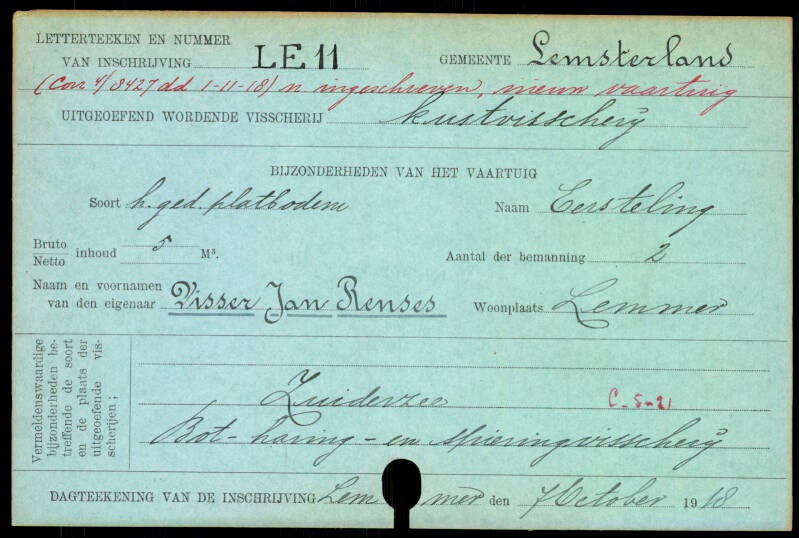 LETTERTEEKEN EN NUMMER
VAN INSCHRIJVING LE 11 GEMEENTE Lemsterland
(Corr 4/8427 dd 1-11-18) n ingeschreven, nieuw vaartuig
UITGEOEFEND WORDENDE VISSCHERIJ kustvisscherij
BIJZONDERHEDEN VAN HET VAARTUIG
Soort h. ged. platbodem Naam Eersteling
Bruto
Netto inhoud 5 M³. Aantal der bemanning 2
Naam en voornamen
van den eigenaar Visser Jan Renses Woonplaats Lemmer
Vermeldenswaardige
bijzonderheden be-
treffende de soort
en de plaats der
uitgeoefende vis-
scherijen;
Zuiderzee C-5-21
Bot- haring- en spieringvisscherij
DAGTEEKENING VAN DE INSCHRIJVING Lemmer den 7 October 1918